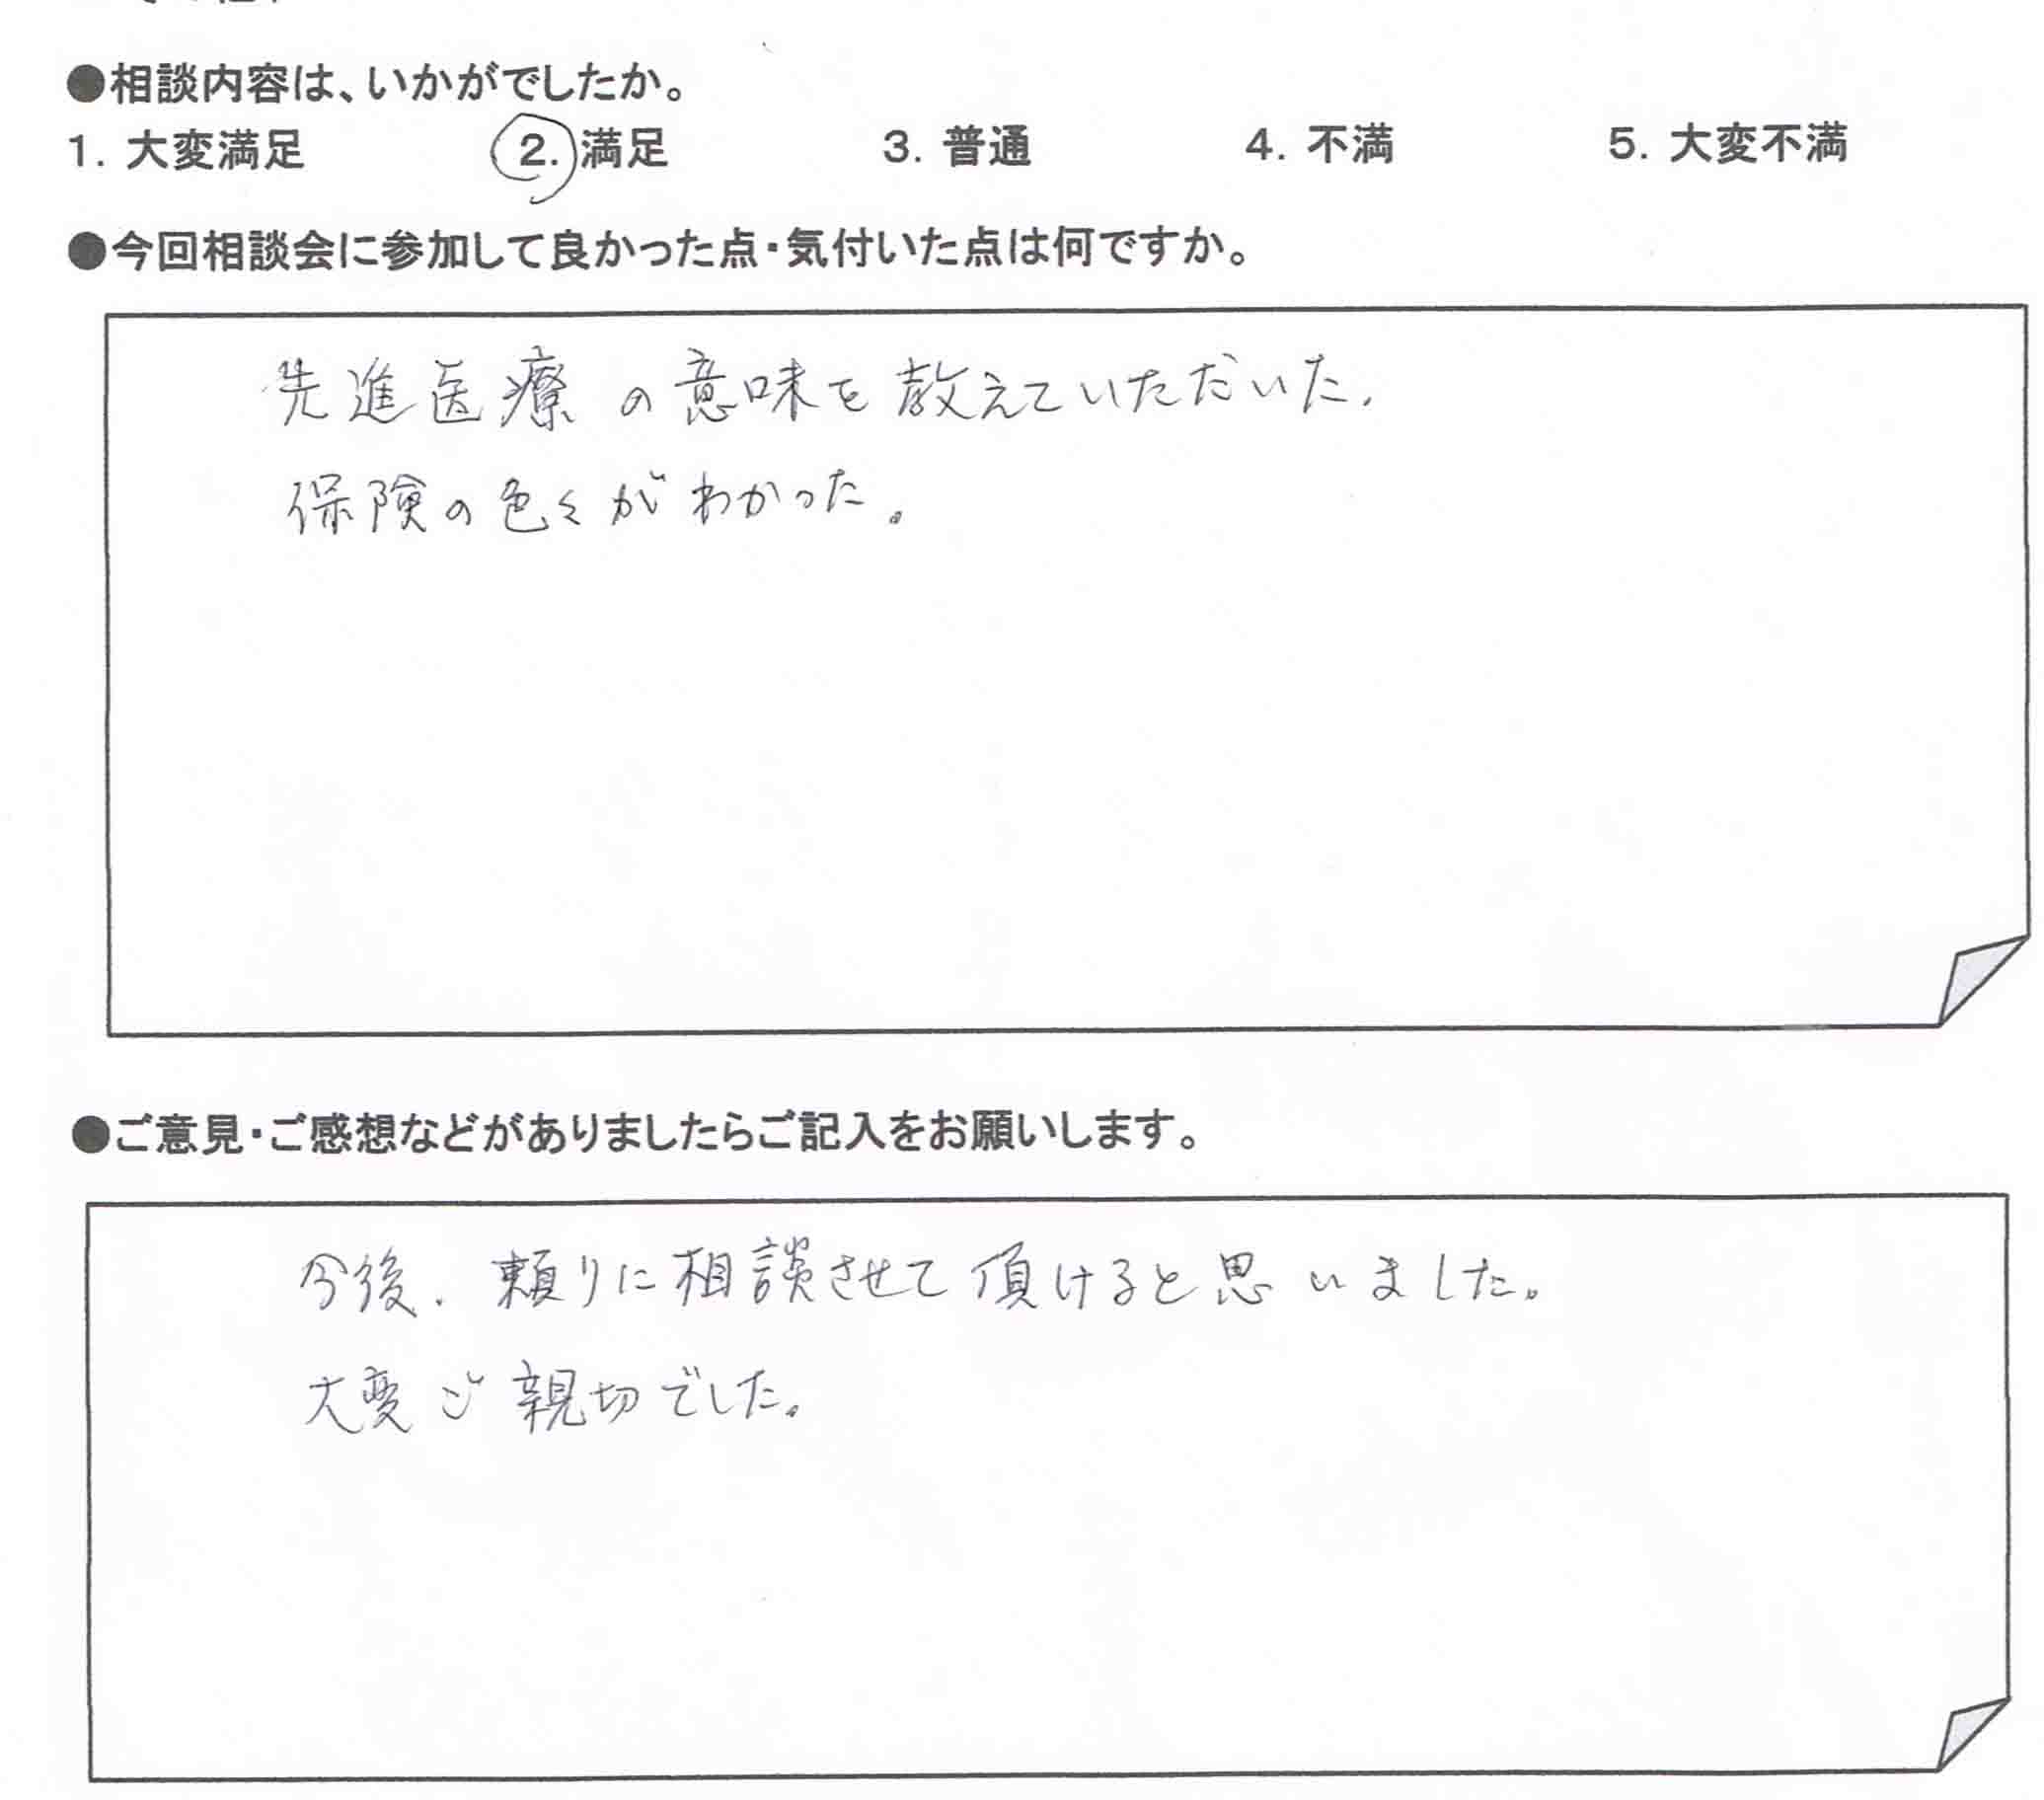 ●相談内容は、いかがでしたか。
1. 大変満足 2. 満足 3. 普通 4. 不満 5. 大変不満
●今回相談会に参加して良かった点・気付いた点は何ですか。
先進医療の意味を教えていただいた.
保険の色々がわかった。
●ご意見・ご感想などがありましたらご記入をお願いします。
今後、頼りに相談させて頂けると思いました。
大変ご親切でした。